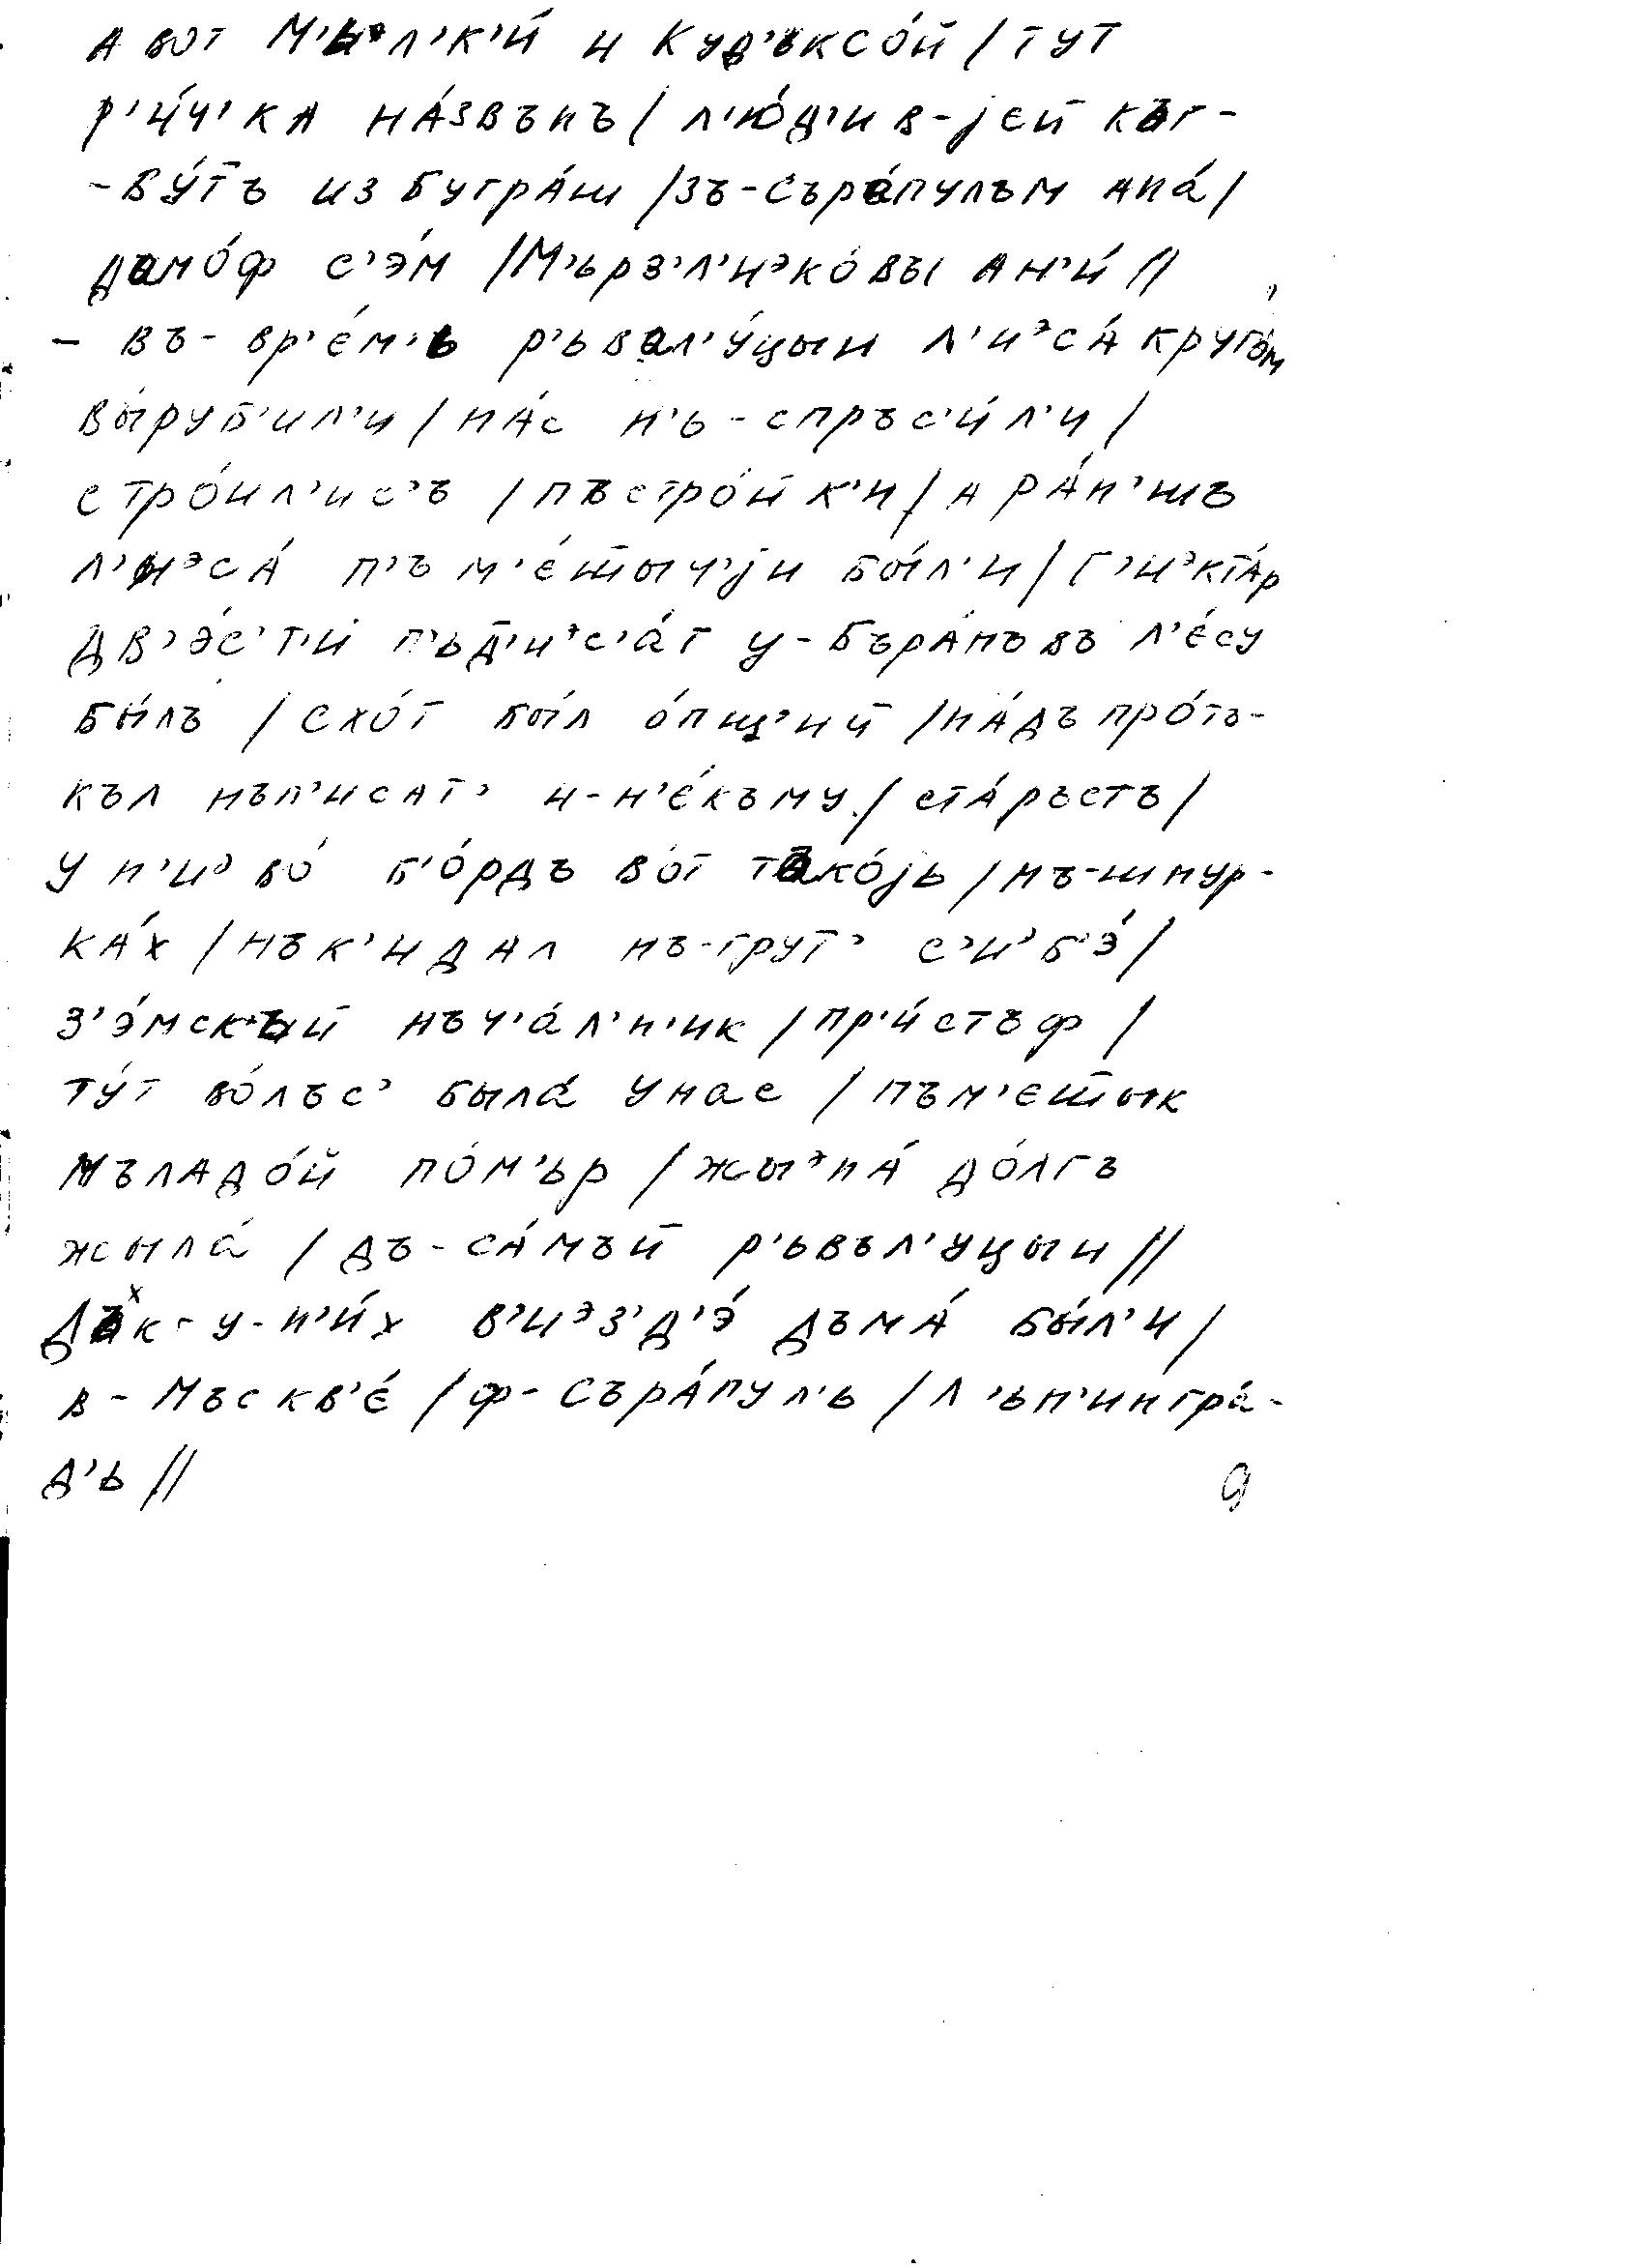 А вот М'иэл'к'и́й и Куд'ъксо́й / тут
р'и́ч'ка на́звънъ / л'у́д'и в-jeй къг-
-ву́тъ из Бугра́ш / зъ-Съра́пулъм ана́ /
дамо́ф с'э́м / М'ьрз'л'иэко́вы ан'и́ //
- въ-вр'е́м'ь р'ьвал'у́цыи л'иэса́ круго́м
вы́руб'ил'и / на́с н'ь-спръс'и́л'и /
стро́ил'ис'ъ / пъстро́йк'и / а ра́н'шъ
л'иэса́ п'ъм'е́шшыч'jи бы́л'и / г'иэкта́р
дв'э́с'т'и п'ьд'иэс'а́т у-Бъра́нъвъ л'е́су
бы́лъ / схо́т бы́л о́пщ'ий / на́дъ про́тъ-
къл нъп'исат' и-н'е́къму / ста́ръстъ /
у н'иэво́ б'о́рдъ во́т тако́jь / нъ-шнур-
ка́х / нък'идал нъ-грут' с'иэб'э́ /
з'э́мскъй нъч'а́л'н'ик / пр'и́стъф /
ту́т во́лъс' была́ у нас / пъм'ешшык
мъладо́й по́м'ьр / жыэна́ до́лгъ
жыла́ / дъ-са́мъй р'ьвъл'уцыи //
Дък-у-н'и́х в'иэз'д'э́ дъма́ бы́л'и /
в-Мъскв'е́ / ф-Съра́пул'ь / Л'ьн'ингра́-
д'ь //
9